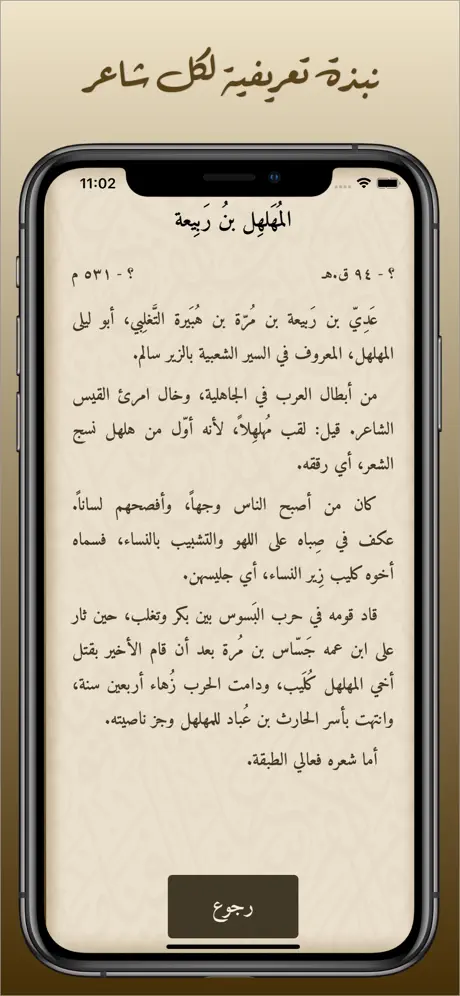 نبذة تعريفية لكل شاعر
11:02
المُهَلهِل بنُ رَبِيعة
؟ - ٩٤ ق.هـ
؟ - ٥٣١ م
عَدِيّ بن رَبيعة بن مُرّة بن هُبَيرة التَّغلِبي، أبو ليلى
المهلهل، المعروف في السير الشعبية بالزير سالم.
من أبطال العرب في الجاهلية، وخال امرئ القيس
الشاعر. قيل: لقب مُهلهِلاً، لأنه أوّل من هلهل نسج
الشعر، أي رققه.
كان من أصبح الناس وجهاً، وأفصحهم لساناً.
عكف في صِباه على اللهو والتشبيب بالنساء، فسماه
أخوه كليب زِير النساء، أي جليسهن.
قاد قومه في حرب البَسوس بين بكر وتغلب، حين ثار
على ابن عمه جَسّاس بن مُرة بعد أن قام الأخير بقتل
أخي المهلهل كُلَيب، ودامت الحرب زُهاء أربعين سنة،
وانتهت بأسر الحارث بن عُباد للمهلهل وجز ناصيته.
أما شعره فعالي الطبقة.
رجوع